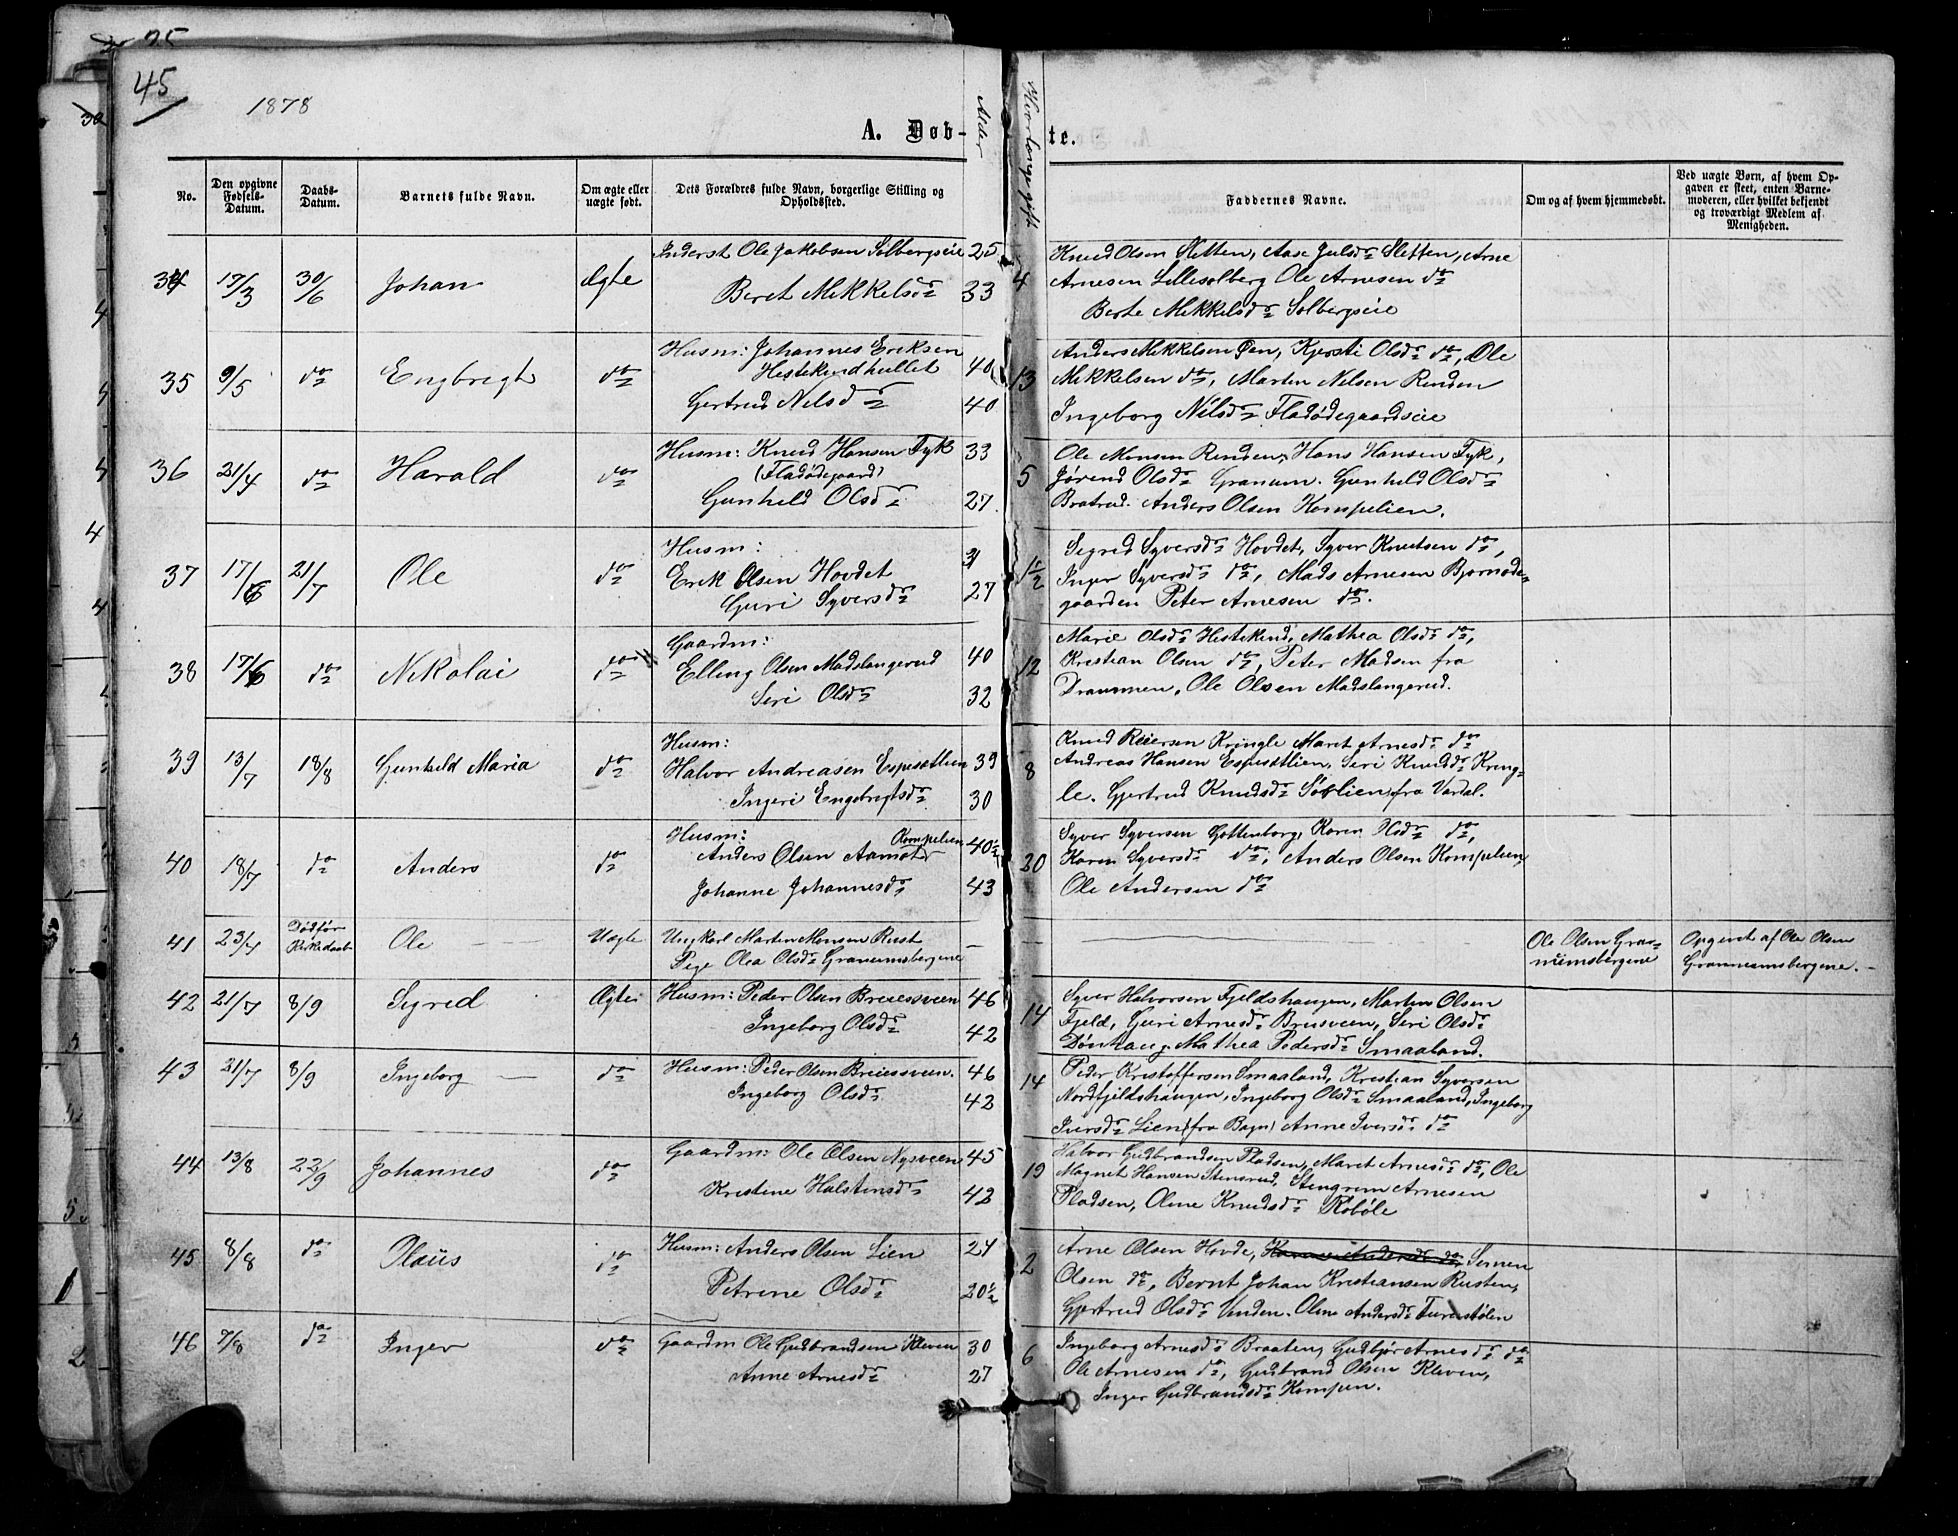 45
1878
A. Døb-te.
Alder
Hvor længe gift
No.
Den opgivne Fødsels-Datum.
Daabs-Datum.
Barnets fulde Navn.
Om ægte eller uægte født.
Dets Forældres fulde Navn, borgerlige Stilling og Opholdssted.
Faddernes Navne.
Om og af hvem hjemmedøbt.
Ved uægte Børn, af hvem Opgaven er skeet, enten Barnemoderen, eller hvilket bekjendt og troværdigt Medlem af Menigheden.
34 17/3 30/6 Johan Ægte Inderst Ole Jakobsen Solbergseie 25
Beret Mikkelsdr 33
4 Knud Olsen Sletten, Aase Julsdr Sletten, Arne
Arnesen Lillesolberg Ole Arnesen do
Berte Mikkelsdr Solbergseie
35 9/5 do Engbregt do Husm: Johannes Eriksen
Hestekindhullet 40
Gertrud Nilsdr 40
13 Anders Mikkelsen Øen, Kjersti Olsdr do, Ole
Mikkelsen do, Martin Nilsen Renden
Ingeborg Nilsdr Fladødegaardseie
36 21/4 do Harald do Husm: Knud Hansen Fyk 33
(Fladødegaard)
Gunhild Olsdr 27
5 Ole Monsen Renden, Hans Hansen Fyk,
Jørend Olsdr Granum. Gunhild Olsdr
Bratrud. Anders Olsen Kompelien.
37 17/6 21/7 Ole do Husm:
Erik Olsen Hovdet
Guri Syversdr 27
1 1/2 Sigrid Syversdr Hovdet, Syver Knutsen do,
Inger Syversdr do, Mads Arnesen Bjørnøde-
gaarden Peter Arnesen do.
38 17/6 do Nikolai do Gaardm:
Elling Olsen Madslangerud 40
Siri Olsdr 32
12 Marie Olsdr Hestekind, Mathea Olsdr do,
Kristian Olsen do, Peter Madsen fra
Drammen, Ole Olsen Madslangerud.
39 13/7 18/8 Gunhild Maria do Husm:
Halvor Andreasen Espesetlien 39
Ingeri Engebregtsdr 30
8 Knud Reiersen Kringle Maret Arnesdr do
Andreas Hansen Espesetlien, Siri Knudsdr Kring-
le. Gjertrud Knudsdr Sørlien fra Vardal.
40 18/7 do Anders do Husm: Kompelien
Anders Olsen Aamot 40 1/2
Johanne Johannesdr 43
20 Syver Syversen Gottenborg, Karen Olsdr do,
Karen Syversdr do, Anders Olsen Kompelien
Ole Andersen do
41 23/4 Død før Kirkedaab Ole Uægte Ungkarl Martin Monsen Rust
Pige Olea Olsdr Granumsbergene
Ole Olsen Gran-
umsbergene
Opgivet af Ole Olsen
Granumsbergene.
42 21/7 8/9 Sigrid Ægte Husm: Peder Olsen Breiesveen 46
Ingeborg Olsdr 42
14 Syver Halvorsen Fjeldshaugen, Martin Olsen
Fjeld, Guri Arnesdr Brusveen, Siri Olsdr
Dønhaug, Mathea Pedersdr Smaaland.
43 21/7 8/9 Ingeborg do Husm: Peder Olsen Breiesveen. 46
Ingeborg Olsdr 42
14 Peder Kristoffersen Smaaland, Kristian Syversen
Nordfjeldshaugen, Ingeborg Olsdr Smaaland, Ingeborg
Iversdr Lien (fra Bagn) Anne Iversdr do
44 13/8 22/9 Johannes do Gaardm: Ole Olsen Nysveen 45
Kristine Halstensdr 42
19 Halvor Gudbrandsen Pladsen, Maret Arnesdr do, Ole
Magnet Hansen Stensrud, Stengrim Arnesen
Pladsen, Oline Knudsdr Robøle
45 8/8 do Olaüs do Husm: Anders Olsen Lien 24
Petrine Olsdr 20 1/2
2 Arne Olsen Hovde, Simen
Olsen do, Bernt Johan Kristiansen Rusten,
Gjertrud Olsdr Unden. Oline Andersdr Turestølen
46 7/8 do Inger do Gaardm Ole Gudbrandsen Kleven 30
Anne Arnesdr 27
6 Ingeborg Arnesdr Braaten, Gudbjør Arnesdr do
Ole Arnesen do, Gudbrand Olsen Kleven,
Inger Gudbrandsdr Kompen.